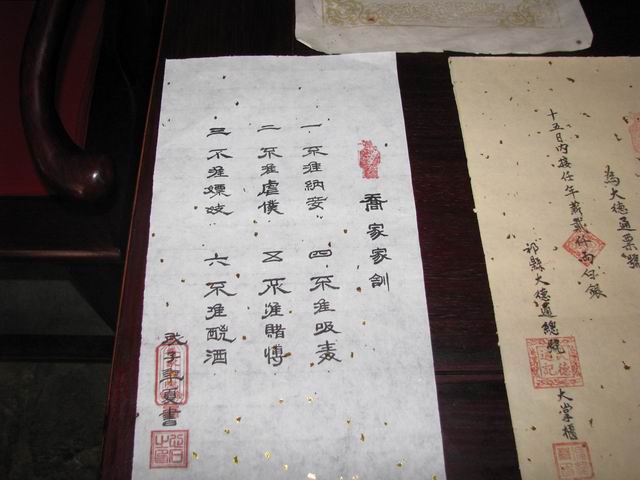 喬家家訓
一不准納妾 四不准吸毒
二不准虐僕 五不准賭博
三不准嫖妓 六不准酗酒
戊子年夏書
為大德通票號
十五日內 任年薪貳仟兩白銀
祁縣大德通總號
大掌櫃